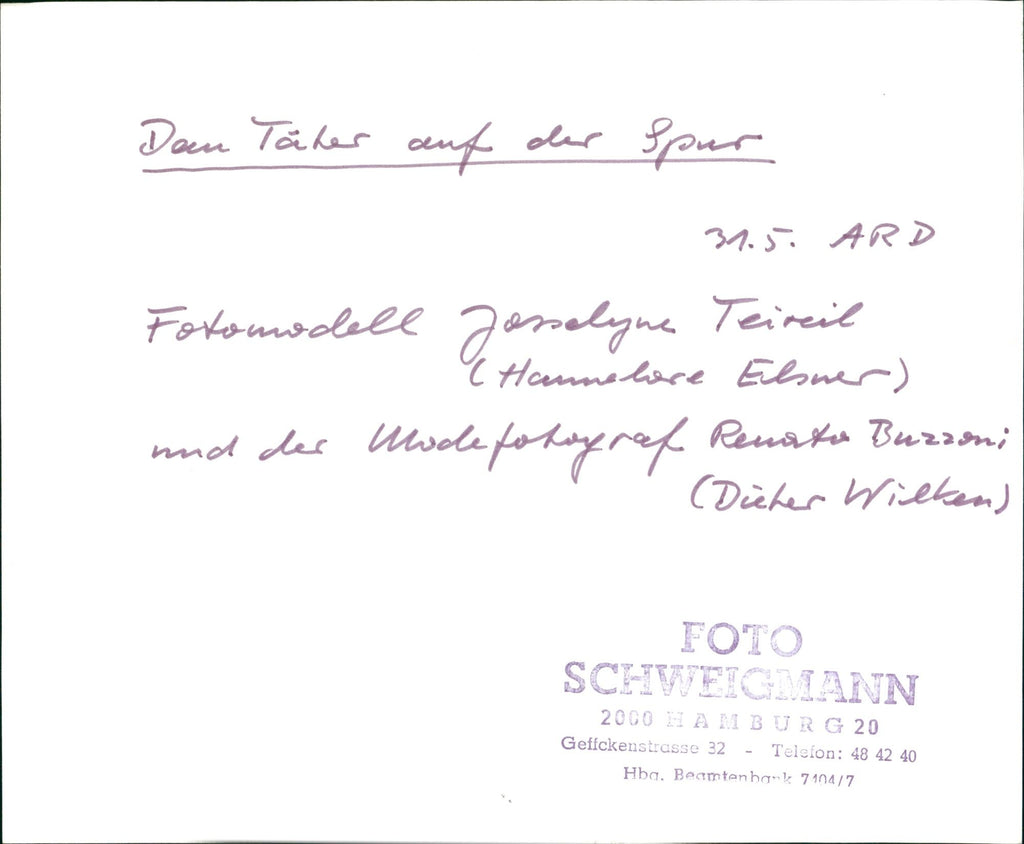 Dem Täter auf der Spur
31.5. ARD
Fotomodell Josselyne Teireil
(Hannelore Elsner)
und der Modefotograf Renato Buzzoni
(Dieter Wilken)
FOTO
SCHWEIGMANN
2000 HAMBURG 20
Geffckenstrasse 32 - Telefon: 48 42 40
Hbg. Beamtenbank 7104/7